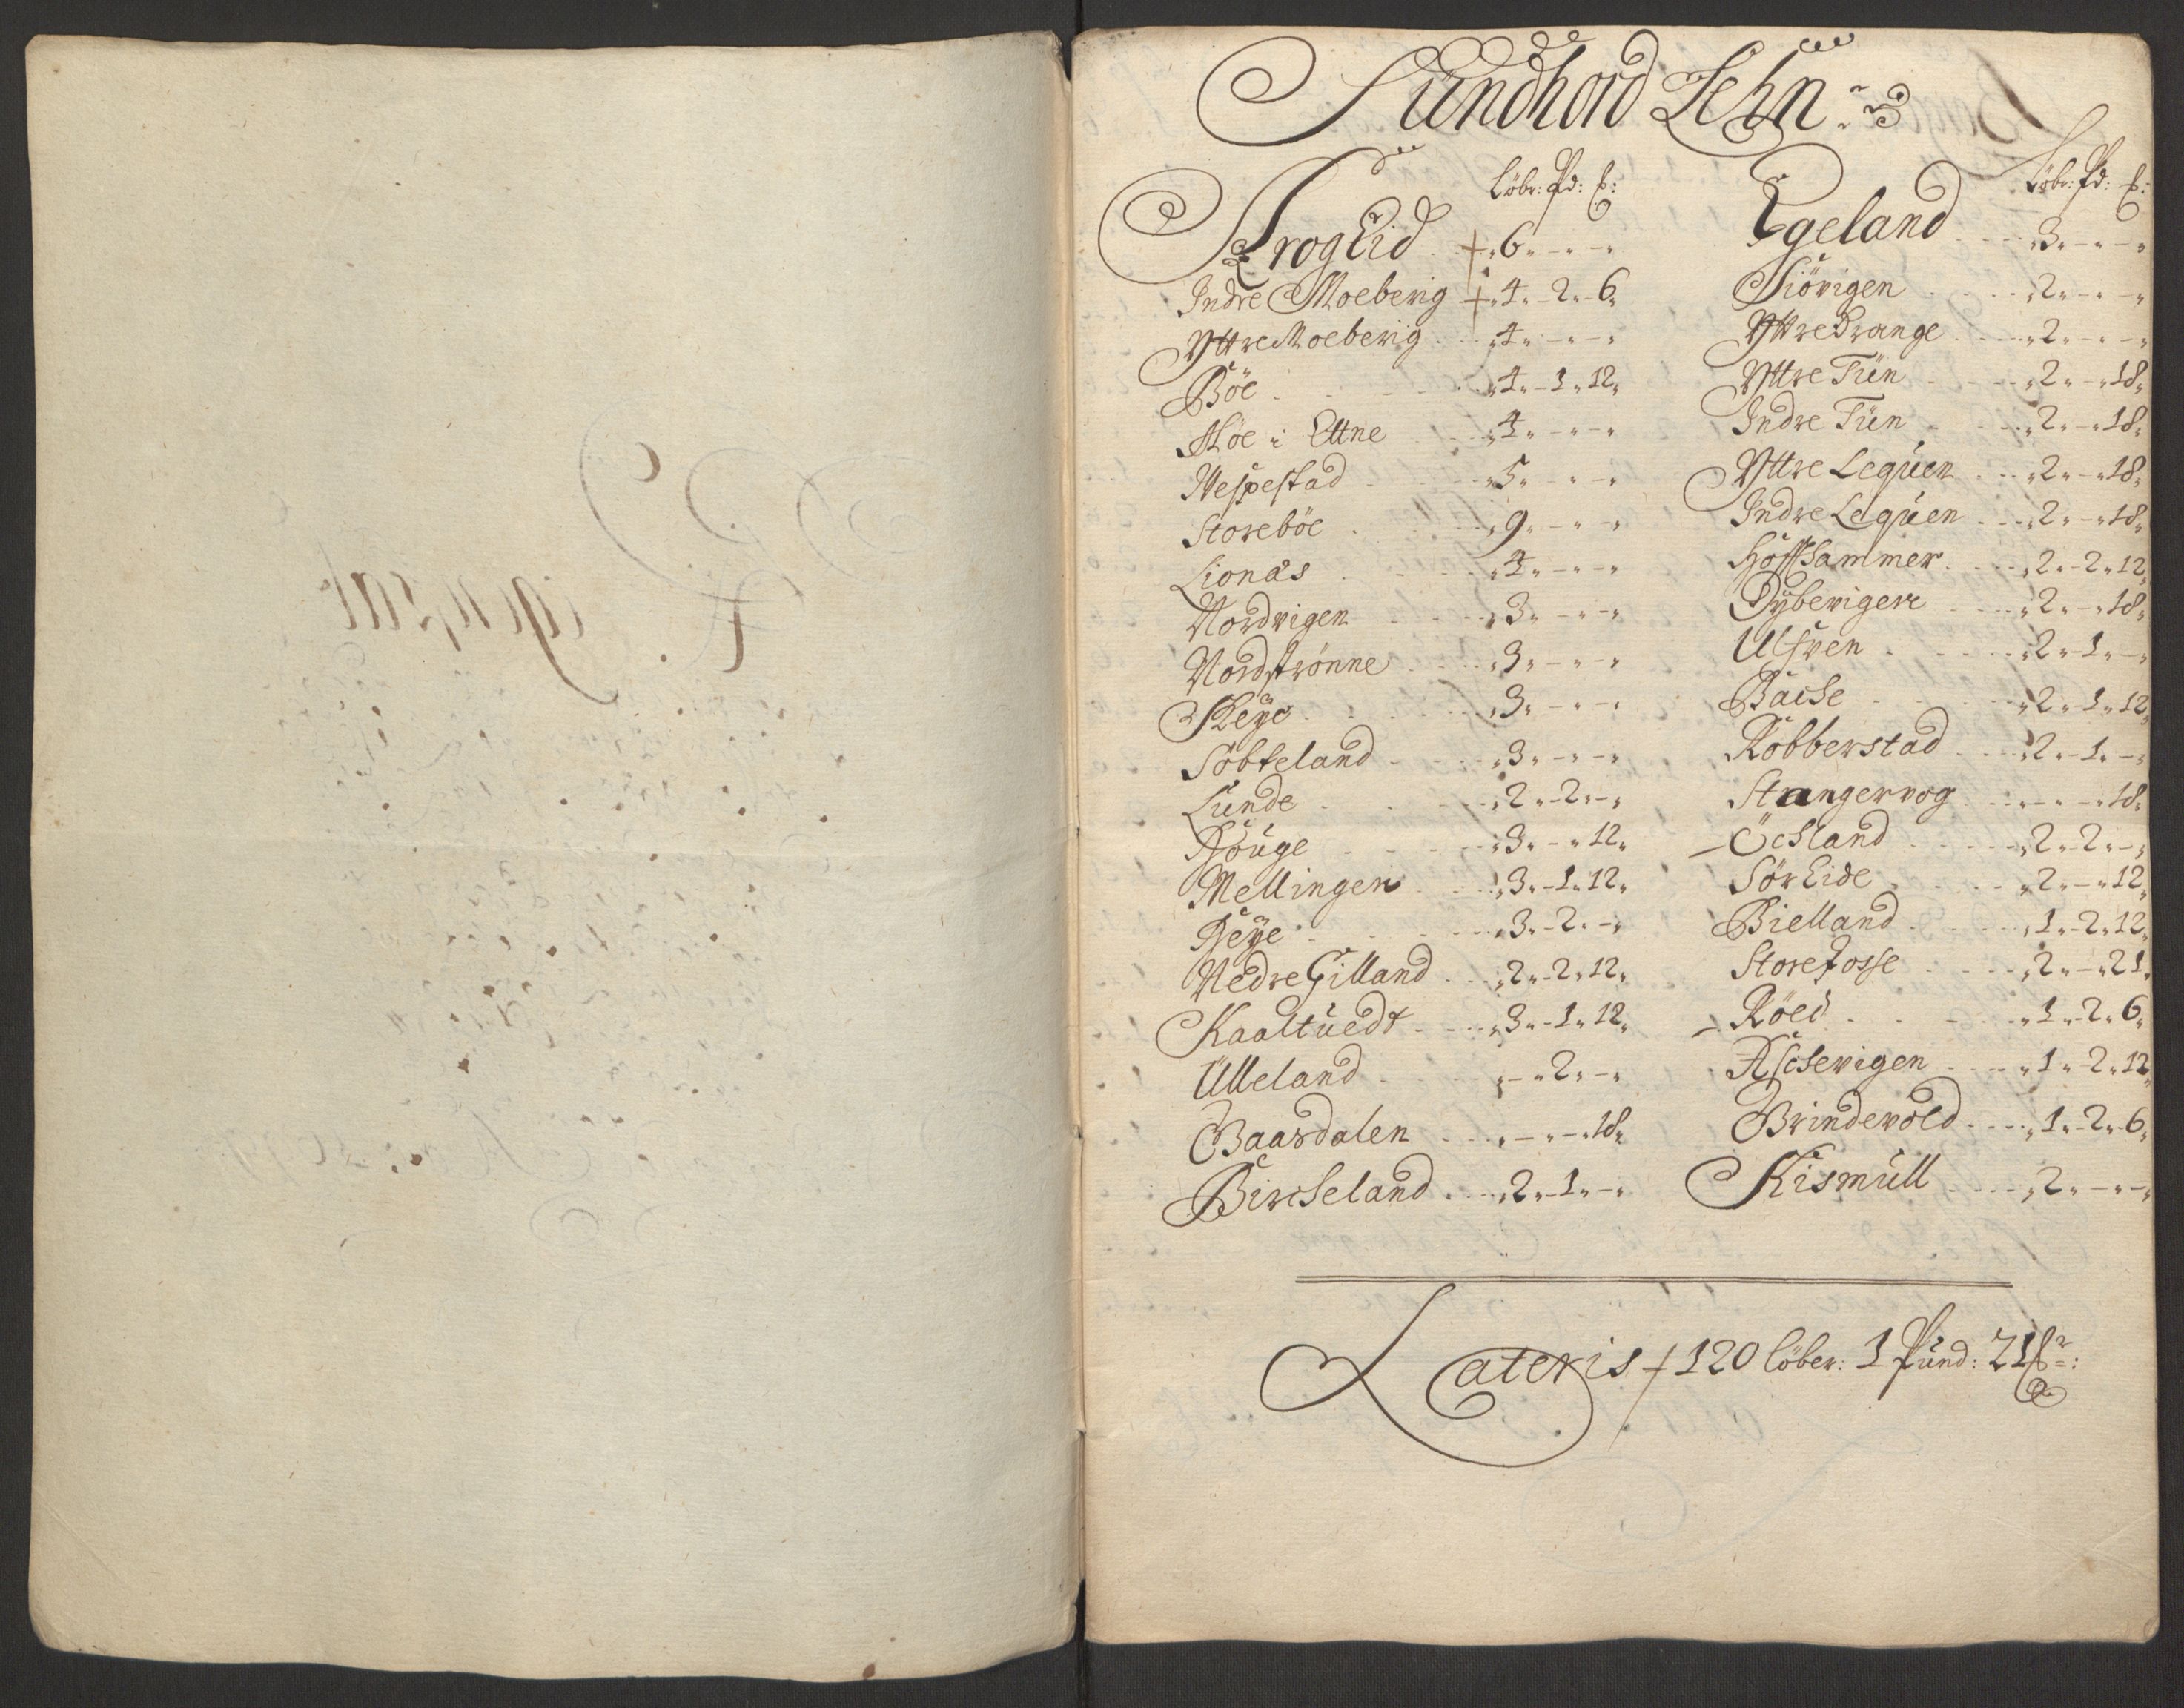 Sundhord Lehn
Löbr: Pd: ℔:
FrogEid 6 " - " - "
Indre Moeberig 4 " - 2 " - 6 "
Yttre Moeberig 4 " - " - "
Böe 4 " - 1 " 12 "
Höe i Ettne 4 " - " - "
Vespestad 5 " - " - "
Storeböe 9 " - " - "
Lionås 4 " - " - "
Nordvigen 3 " - " - "
Nordstrønne 3 " - " - "
Skeye 3 " - " - "
Söbteland 3 " - " - "
Lunde 2 " - 2 " - "
Houge 3 " - " 12 "
Mellingen 3 " - 1 " 12 "
Heye 3 " - 2 " - "
Nedre Gilland 2 " - 2 " 12 "
Kaaltuedt 3 " - 1 " 12 "
Ulleland " - " 2 " - "
Baardalen " - " - " 18 "
Bircheland 2 " - 1 " - "
Löbr: Pd: ℔:
Egeland 3 " - " - "
Siövigen 2 " - " - "
Yttre Drange 2 " - " - "
Yttre Tün 2 " - " 18 "
Indre Tün 2 " - " 18 "
Yttre Lequen 2 " - " 18 "
Indre Lequen 2 " - " 18 "
Höffhammer 2 " - 2 " 12 "
Dybevigen 2 " - " 18 "
Ulsven 2 " - 1 " - "
Bache 2 " - 1 " 12 "
Robberstad 2 " - 1 " - "
Strangervog " - " - " 18 "
Öchland 2 " - 2 " - "
SörEide 2 " - " 12 "
Bielland 1 " - 2 " 12 "
Storefosse 2 " - " 21 "
Röed 1 " - 2 " 6 "
Aschevigen 1 " - 2 " 12 "
Brindevold 1 " - 2 " 6 "
Kismull 2 " - " - "
Lateris 120 löber: 1 Pund: 21 ℔r: